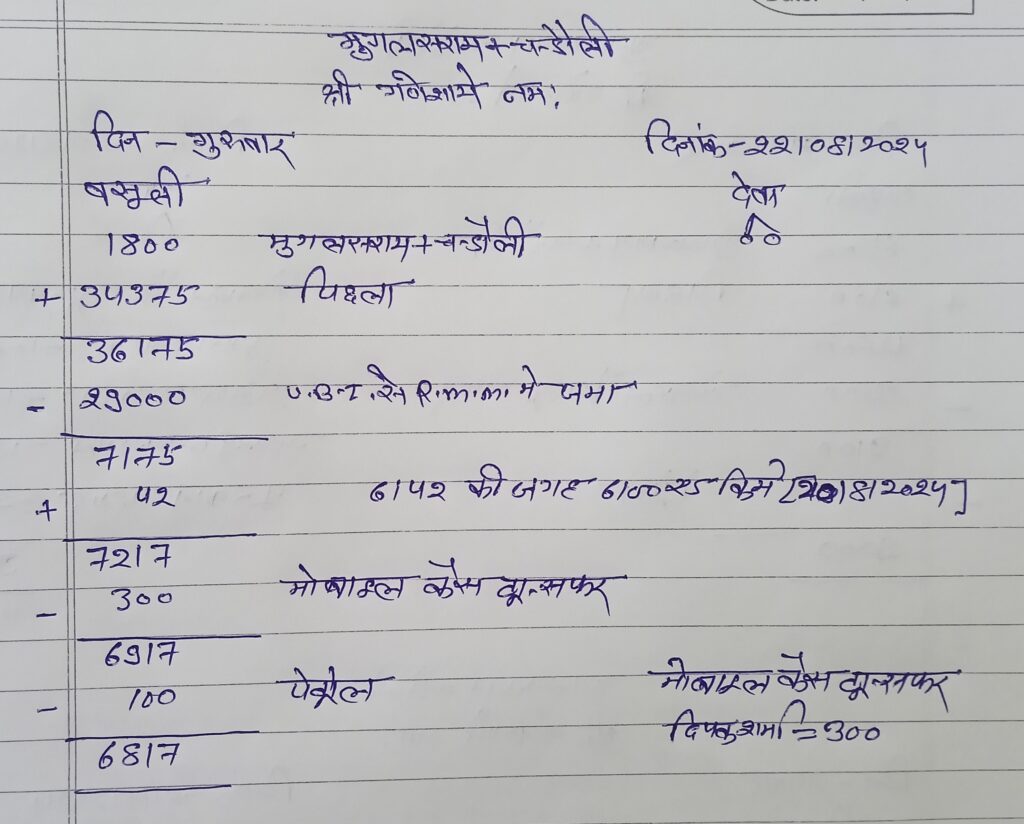 मुगलसराय + चन्डौली
श्री गणेशाये नमः
दिन - गुरुवार दिनांक - 22/08/2024
बसूली देवा
1800 मुगलसराय + चन्डौली
+ 34375 पिछला
36175
- 29000 U.B.I. से R.m.m. मे जमा
7175
+ 42 6142 की जगह 6100 RS किये [20/8/2024]
7217
- 300 मोबाइल कैस ट्रान्सफर
6917
- 100 पेट्रोल मोबाइल कैस ट्रान्सफर
6817 दिपकु शर्मा = 300